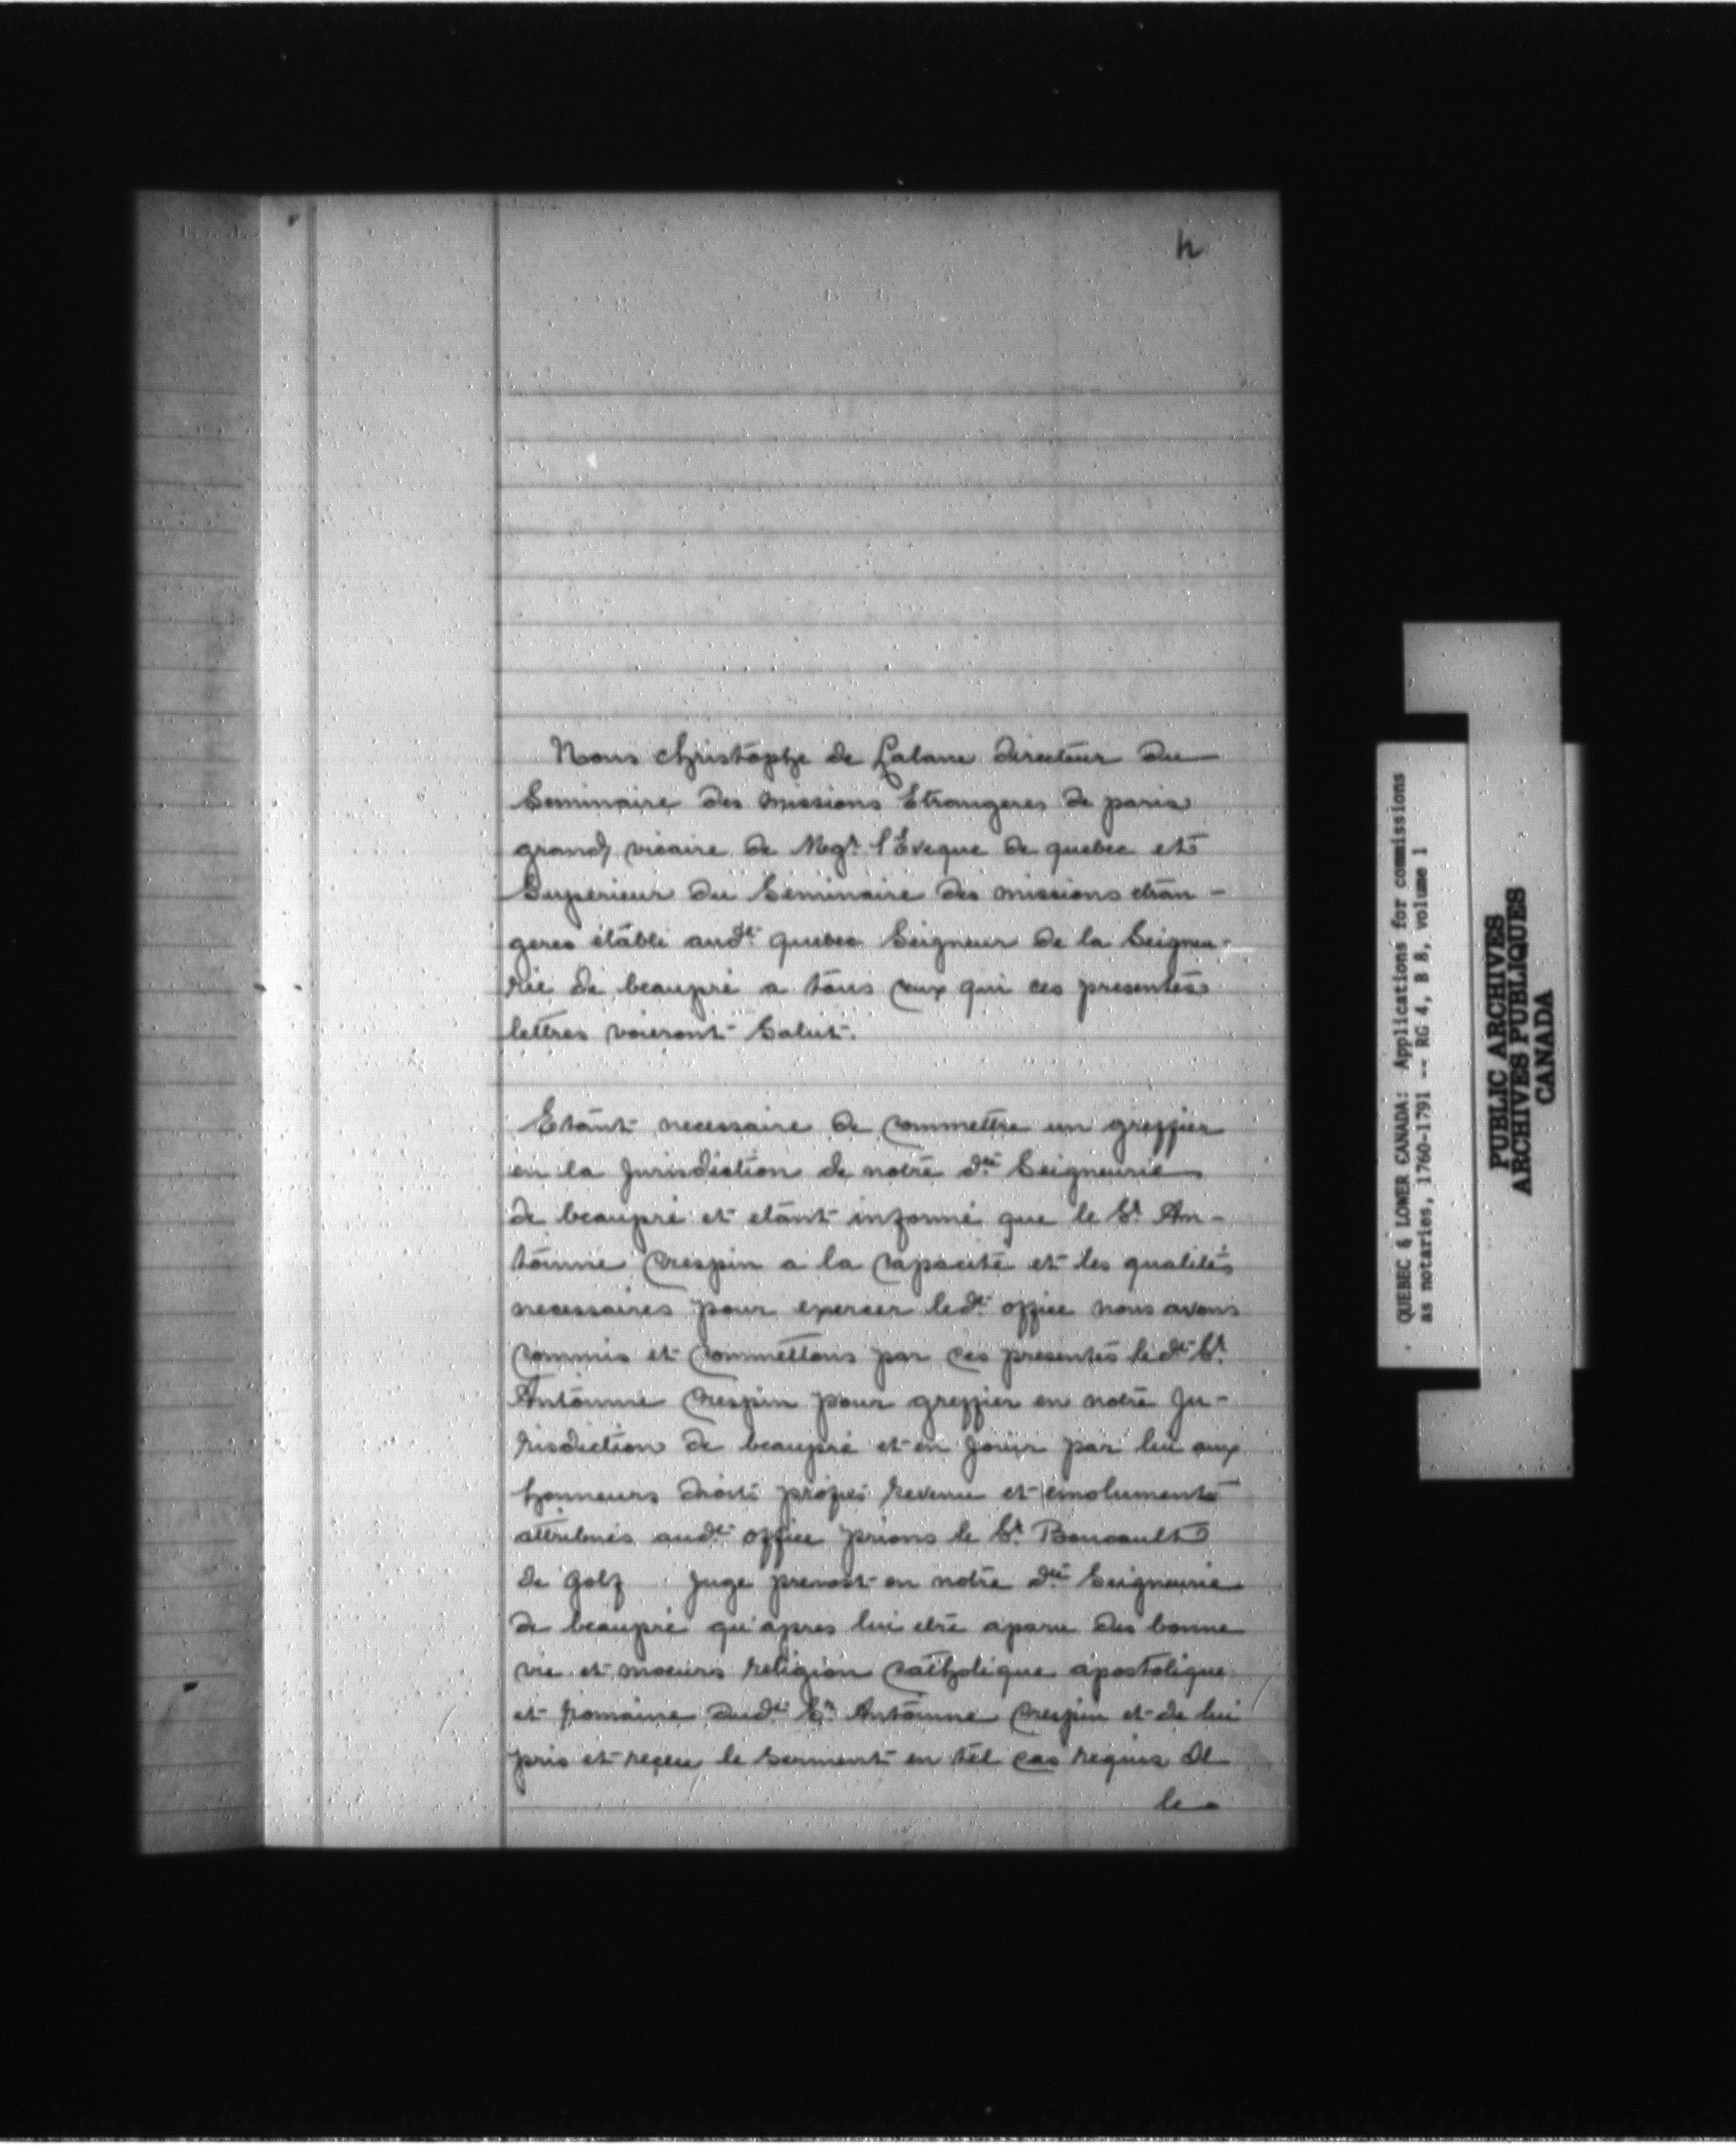 4
Nous christophe de Lalane directeur du
Seminaire des missions Etrangeres de paris
grand vicaire de Msgr. l'Eveque de quebec et
Superieur du Séminaire des missions étran-
geres établi audt. quebec Seigneur de la Seigneu-
rie de beaupré a tous ceux qui ces presentes
lettres voieront Salut.
Etant necessaire de commettre un greffier
en la Jurisdiction de notre dte. Seigneurie
de beaupré et etant informé que le Sr. An-
toinne Crespin a la capacité et les qualités
necessaires pour exercer ledt. office nous avons
commis et commettons par ces presentes ledt. Sr.
Antoinne Crespin pour greffier en notre Ju-
risdiction de beaupré et en jouir par lui aux
honneurs droits profits revenu et emoluments
attribués audt. office prions le Sr. Boucault
de Golf Juge prevost en notre dte. Seigneurie
de beaupré qu'apres lui etre aparu des bonne
vie et moeurs religion catholique apostolique
et romaine dudt. Sr. Antoinne Crespin et de lui
pris et reçeu le serment en tel cas requis Il
le
QUEBEC & LOWER CANADA: Applications for commissions
as notaries, 1760-1791 -- RG 4, B 8, volume 1
PUBLIC ARCHIVES
ARCHIVES PUBLIQUES
CANADA